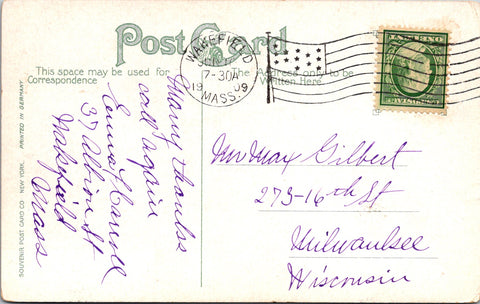 Post Card
This space may be used for
Correspondence
The Address only to be
Written Here.
WAKEFIELD
7-30A
1909
MASS.
Many thanks
call again
37 Albion St
Wakefield
Mass
Mr Max Gilbert
273-16th St
Milwaukee
Wisconsin
SOUVENIR POST CARD CO. NEW YORK. PRINTED IN GERMANY